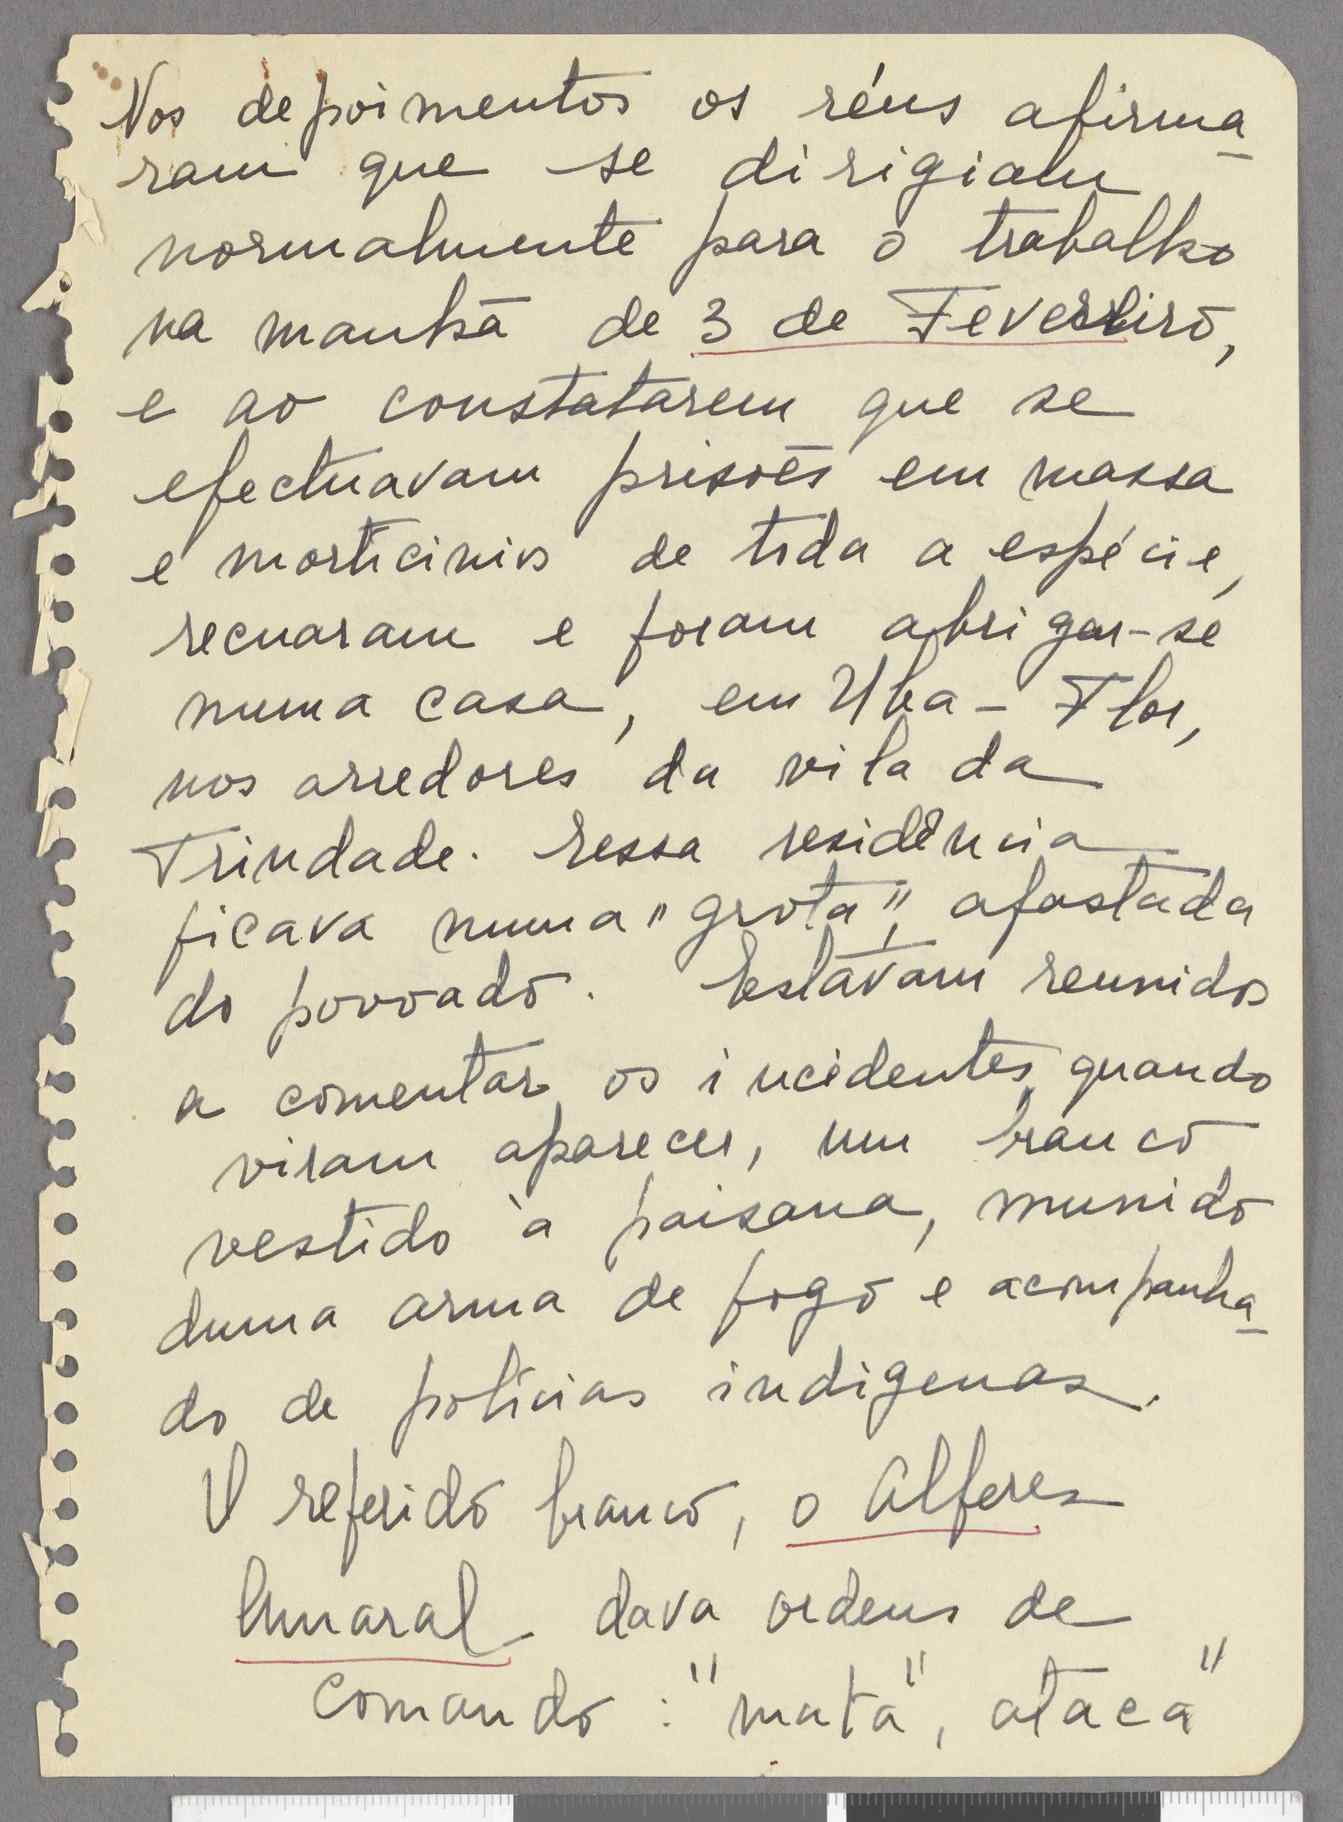 Nos depoimentos os réus afirma-
ram que se dirigiam
normalmente para o trabalho
na manhã de 3 de Fevereiro,
e ao constatarem que se
efectuavam prisões em massa
e morticinios de toda a espécie,
recuaram e foram abrigar-se
numa casa, em Uba-Flor,
nos arredores da vila da
Trindade. Essa residência
ficava numa "grota", afastada
do povoado. Estavam reunidos
a comentar os incidentes quando
viram aparecer, um branco
vestido à paisana, munido
duma arma de fogo e acompanha-
do de polícias indigenas.
O referido branco, o Alferes
Amaral dava ordens de
comando: "mata", ataca"